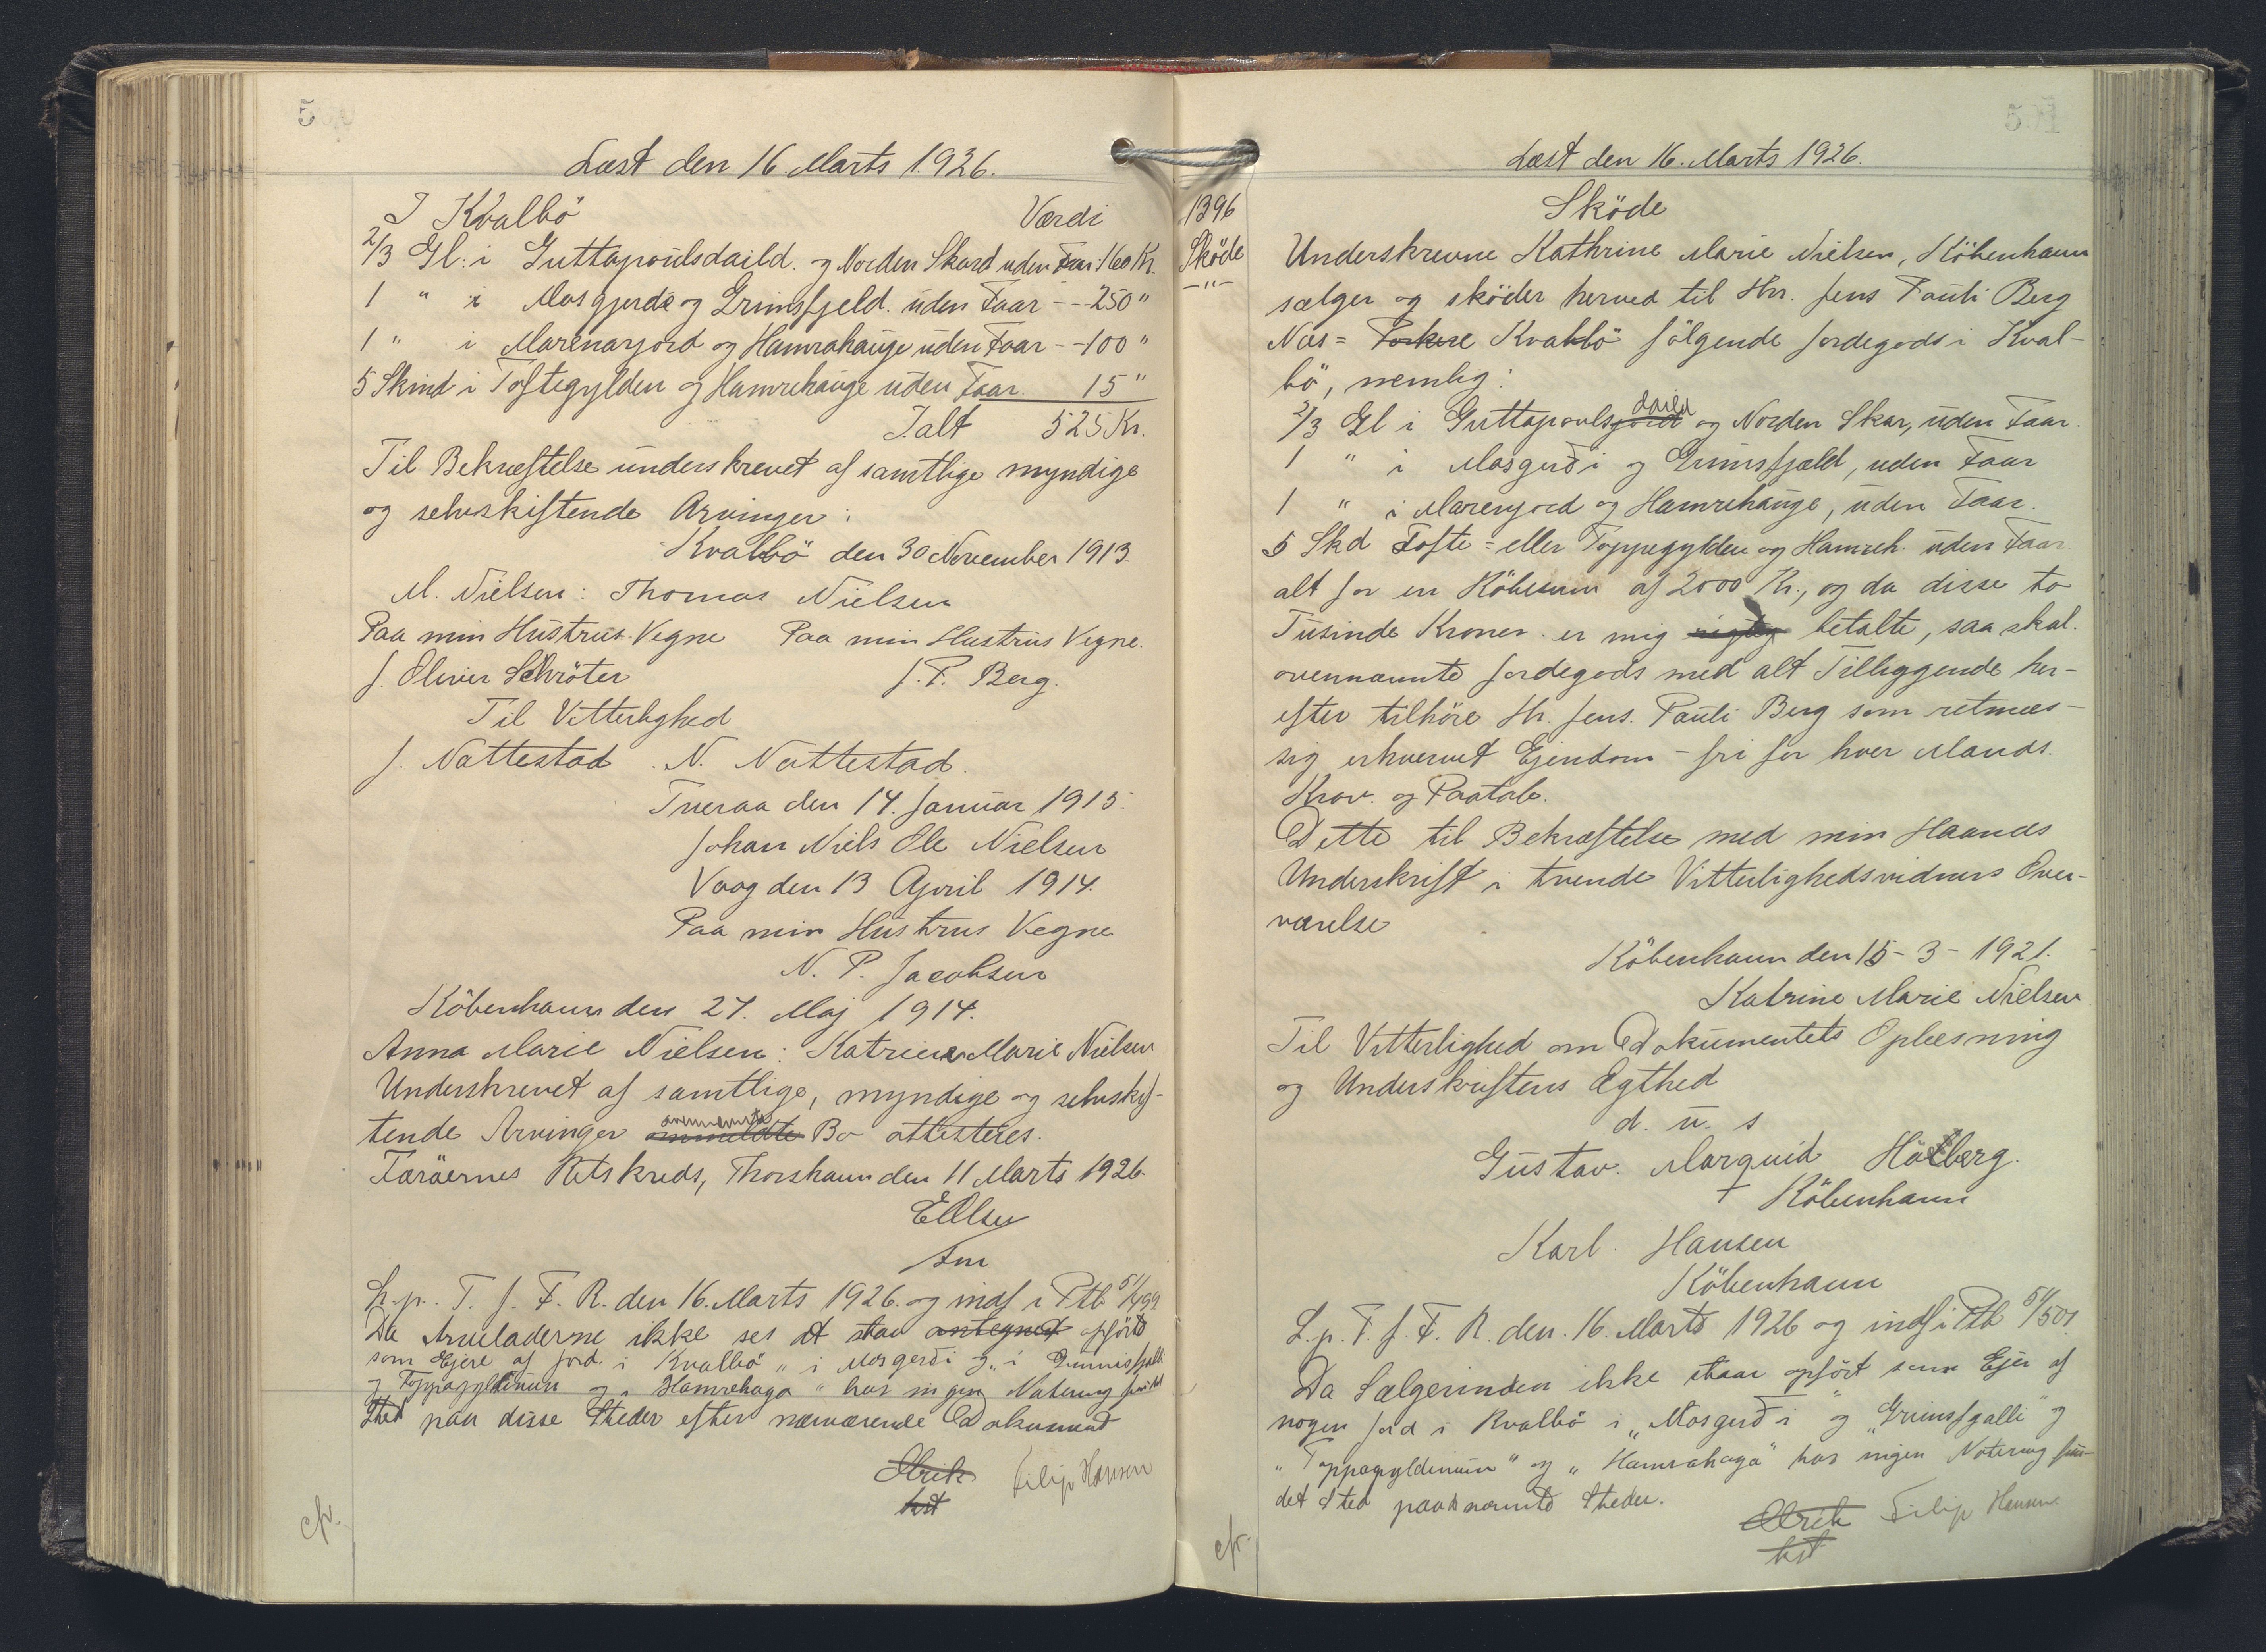 Læst den 16. Marts 1926.
I Kvalbö Værdi
2/3 Gl. i Guttapoulsdaild. og Norden Skard uden Faar 160 Kr.
1 " i Mosgjerde og Grimsfjeld. uden Faar - - 250 "
1 " i Marenarjord og Hamrahauge uden Faar - - 100 "
5 Skind i Toftegylden og Hamrehauge uden Faar. 15 "
Ialt 525 Kr.
Til Bekræftelse underskrevet af samtlige myndige
og selvskiftende Arvinger:
Kvalbö den 30 November 1913.
M. Nielsen: Thomas Nielsen
Paa min Hustrus Vegne Paa min Hustrus Vegne.
J. Oliver Schröter J. P. Berg.
Til Vitterlighed
J. Nattestad. N. Nattestad.
Tveraa den 14. Januar 1915.
Johan Niels Ole Nielsen
Vaag den 13 April 1914.
Paa min Hustrus Vegne
N. P. Jacobsen
Köbenhavn den 27. Maj 1914.
Anna Marie Nielsen: Katrine Marie Nielsen
Underskrevet af samtlige, myndige og selvskif-
tende Arvinger ovennævnte anmeldte Bo attesteres.
Færöernes Retskreds, Thorshavn den 11 Marts 1926.
EOlsen
fm
L. p. T. f. F. R. den 16. Marts 1926. og indf i Ptb 51/499
Da Arveladerne ikke ses at staa antegnet opfört
som Ejere af Jord i Kvalbö "i Mosgerði og "i Grimisfjalli
og Toppagyldinum og i Hamrahaga" har ingen Notering fundet
Sted paa disse Steder efter nærværende Dokument
Olrik Filip Hansen
kst
cfr.
1396
Sköde
-"-
Læst den 16. Marts 1926.
Sköde
Underskrevne Kathrine Marie Nielsen, Köbenhavn
sælger og sköder herved til Hr. Jens Pauli Berg
Næs = Kvalbö fölgende Jordegods i Kval-
bö, nemlig:
2/3 Gl i Guttapoulsjord daild og Norden Skar, uden Faar.
1 " i Mosgerði og Grimsfjæld, uden Faar
1 " i Marenjord og Hamrehauge, uden Faar.
5 Skd Tofte = eller Toppegylden og Hamreh. uden Faar
alt for en Köbesum af 2000 Kr., og da disse to
Tusinde Kroner er mig rigtig betalte, saa skal
ovennævnte Jordegods med alt Tilliggende her-
efter tilhöre Hr. Jens Pauli Berg som retmæs-
sig erhvervet Ejendom - fri for hver Mands
Krav. og Paatale.
Dette til Bekræftelse med min Haands
Underskrift i tvende Vitterlighedsvidners Over-
værelse
Köbenhavn den 15 - 3 - 1921.
Katrine Marie Nielsen
Til Vitterlighed om Dokumentets Oplæsning
og Underskriftens Ægthed
d. u. s
Gustav. Marquid Holberg.
Köbenhavn
Karl. Hansen
Köbenhavn
L. p. T. f. F. R. den. 16. Marts 1926 og indf i Ptb 51/501.
Da Sælgerinden ikke staar opfört som Ejer af
nogen Jord i Kvalbö i "Mosgerði" og "Grimsfjalli" og
"Toppagyldinum" og "Hamrahaga" har ingen Notering fun-
det Sted paa nævnte Steder.
Olrik Filip Hansen.
kst
cfr.